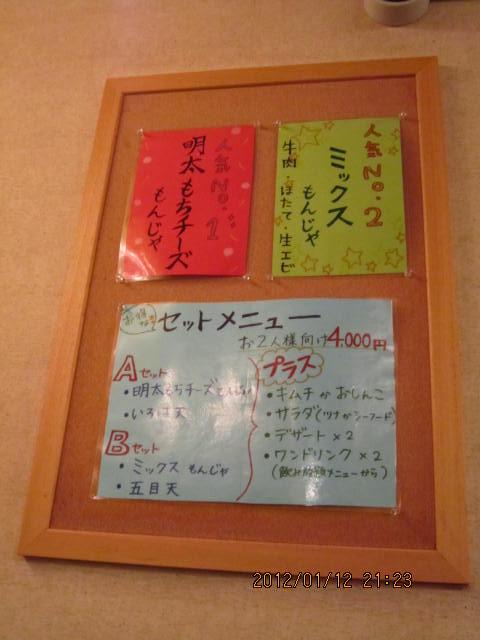 人気No.1
明太もちチーズ
もんじゃ
人気No.2
ミックス
もんじゃ
牛肉・ほたて・生エビ
お得な
セットメニュー
お2人様向け4,000円
Aセット
・明太もちチーズもんじゃ
・いろは天
Bセット
・ミックス もんじゃ
・五目天
プラス
・キムチかおしんこ
・サラダ(ツナかシーフード)
・デザート×2
・ワンドリンク×2
(飲み放題メニューから)
2012/01/12 21:23